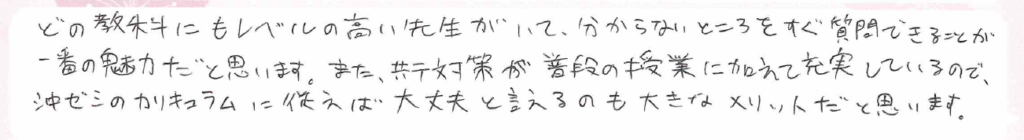 どの教科にもレベルの高い先生がいて、分からないところをすぐ質問できることが
一番の魅力だと思います。また、共テ対策が普段の授業に加えて充実しているので、
沖ゼミのカリキュラムに従えば大丈夫と言えるのも大きなメリットだと思います。